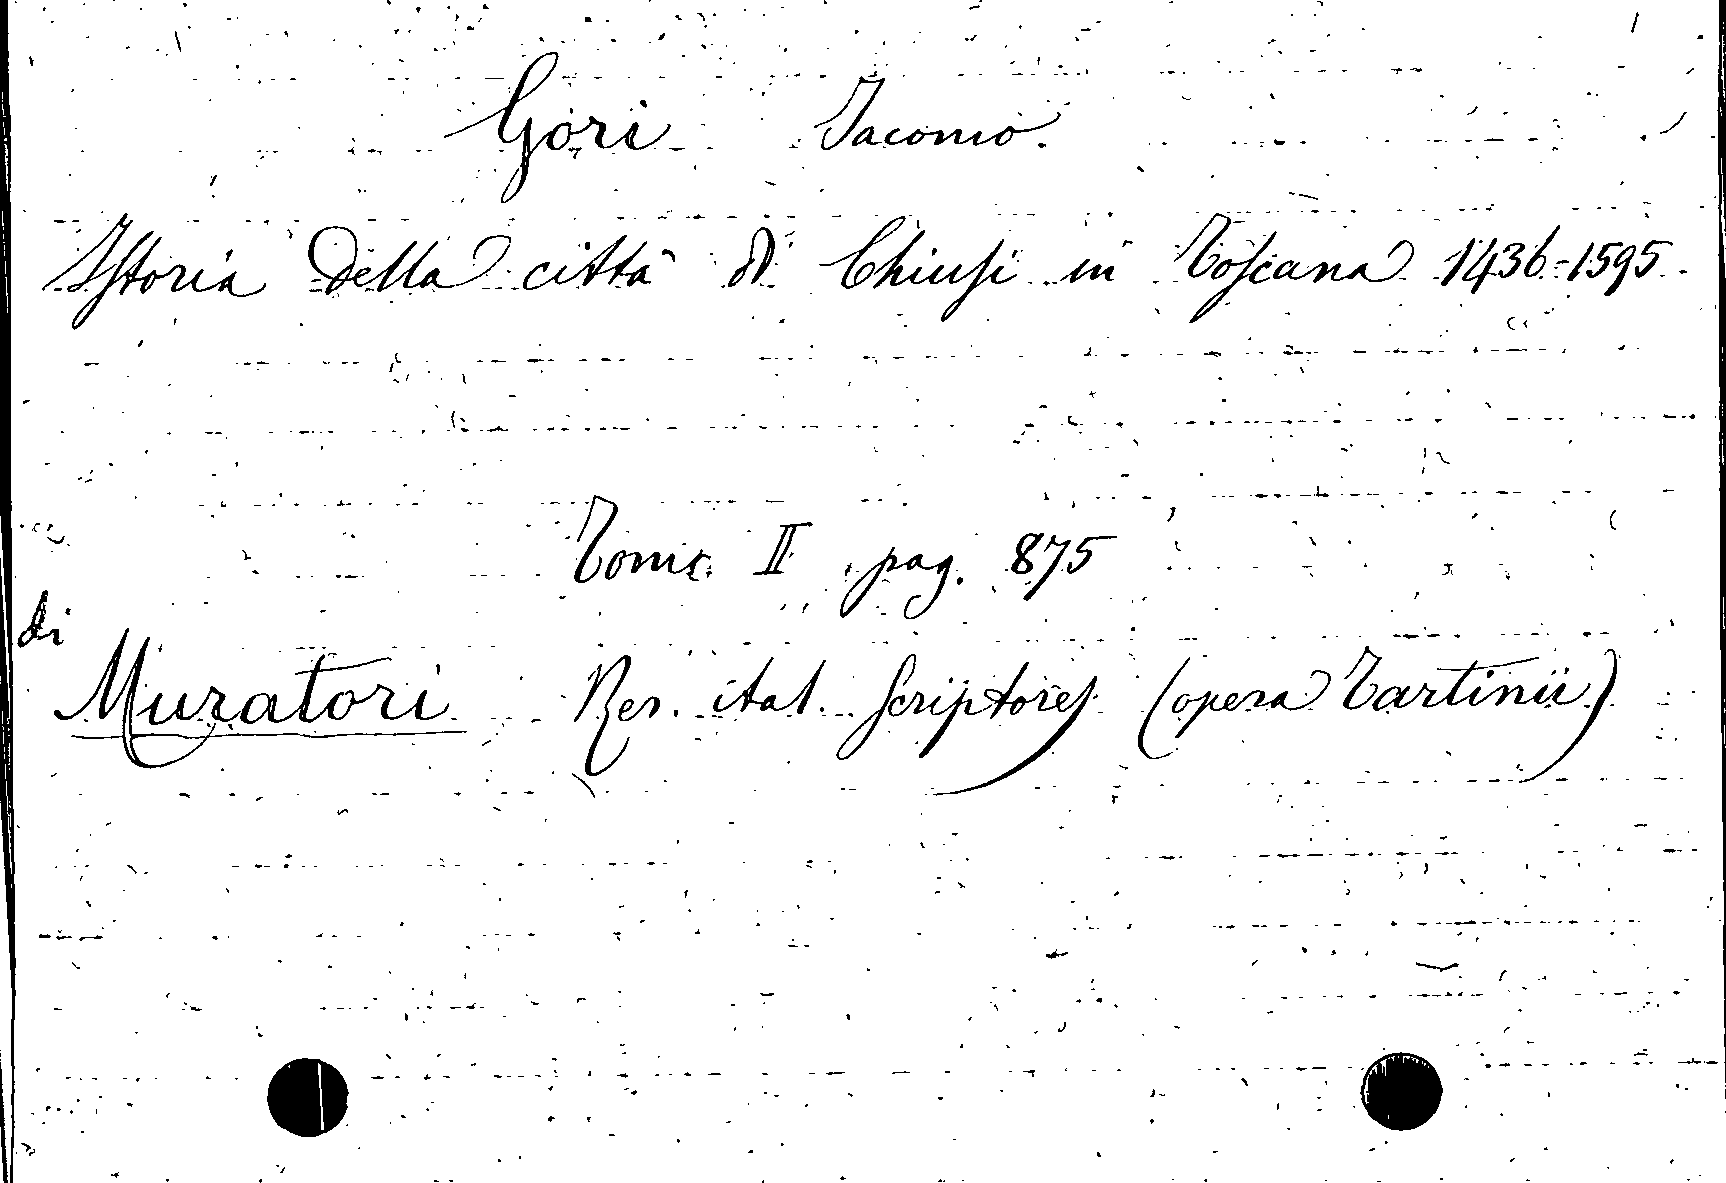 Gori Jacomo.
Istoria della città di Chiusi in Toscana 1436-1595.
Tomo II pag. 875
di
Muratori Rer. ital. Scriptores (opera Tartinii)